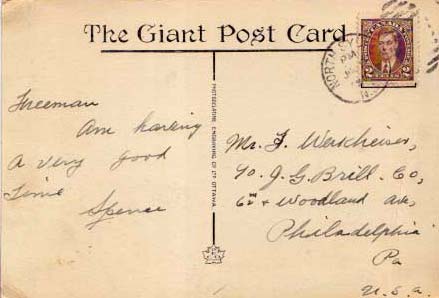 The Giant Post Card
Freeman
Am having
a very good
time
Spence
PHOTOGELATINE ENGRAVING CO. LTD. OTTAWA
Mr. F. Werkheiser,
c/o J. G. Brill. Co,
62nd + Woodland Ave,
Philadelphia
Pa
U.S.A.
CANADA
2 CENTS 2
NORTH SYD
PM
N.